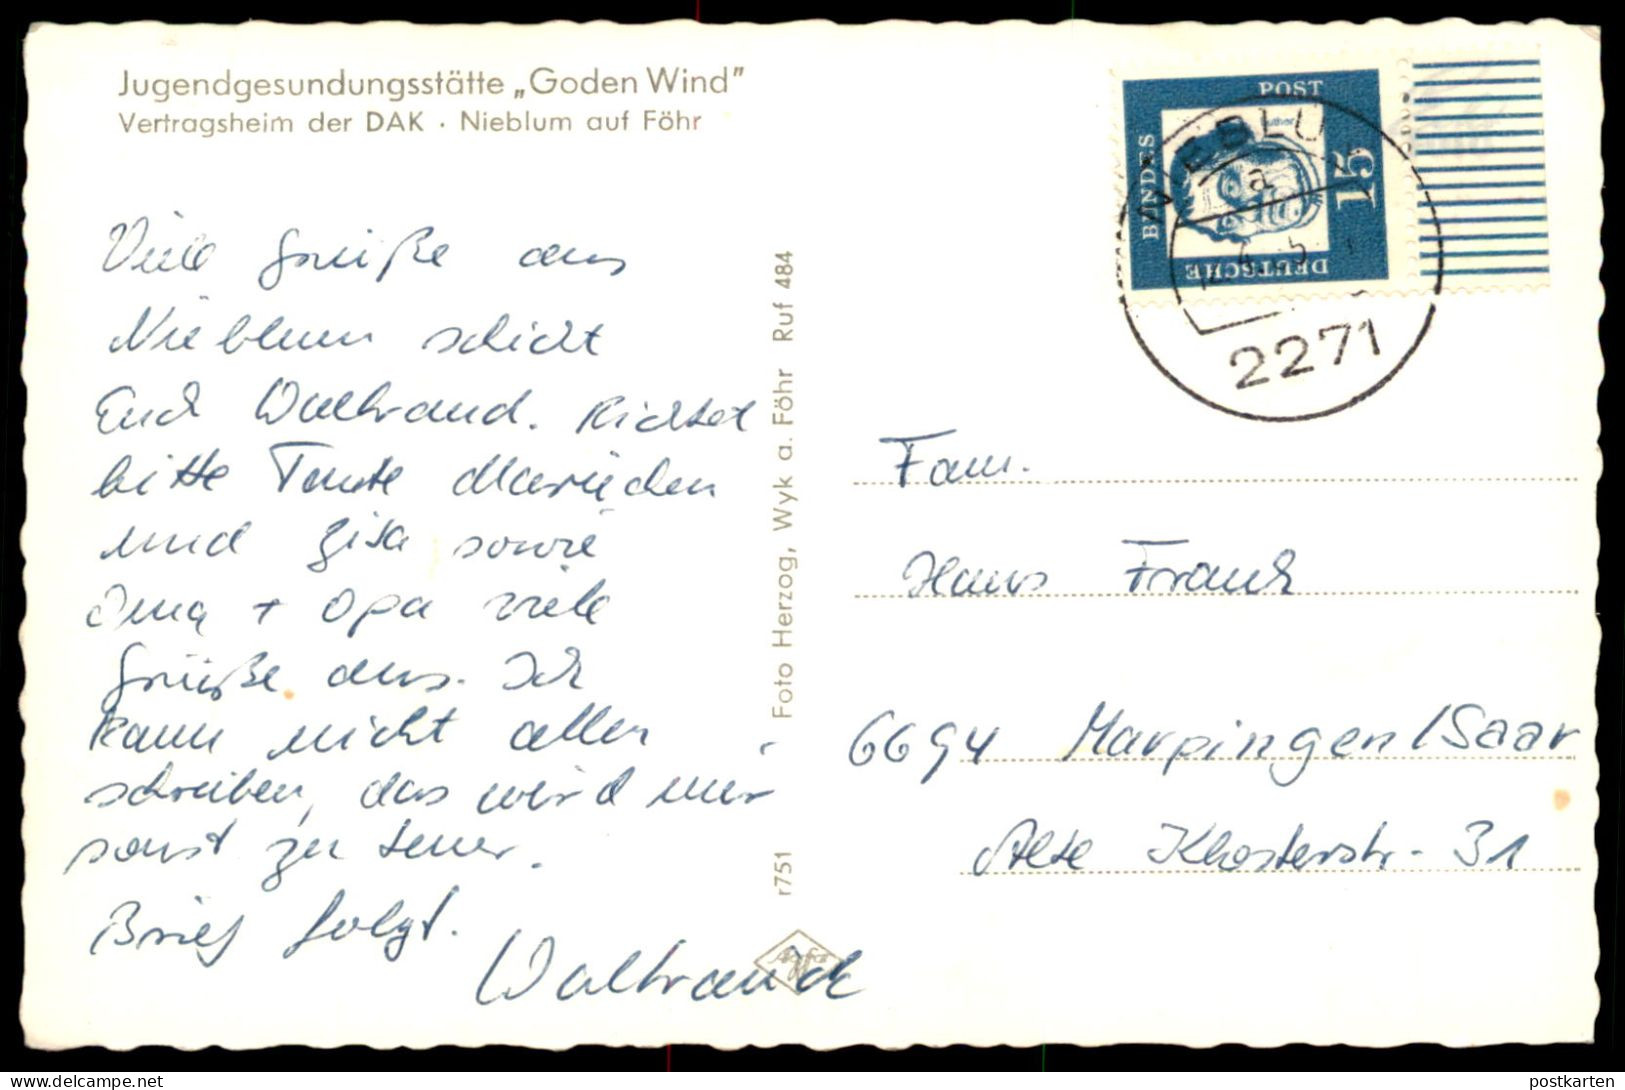 Jugendgesundungsstätte „Goden Wind"
Vertragsheim der DAK · Nieblum auf Föhr
Viele Grüße aus
Nieblum schickt
Euch Waltraud. Richtet
bitte Tante Mariechen
und Gisa sowie
Oma + Opa viele
Grüße aus. Ich
kann nicht allen
schreiben, das wird mir
sonst zu teuer.
Brief folgt.
Waltraud
r751 Foto Herzog, Wyk a. Föhr Ruf 484
Agfa
DEUTSCHE
BUNDES
POST
15
Luther
NIEBLUM
a
2271
Fam.
Hans Frank
6694 Marpingen/Saar
Alte Klosterstr. 31
postkarten